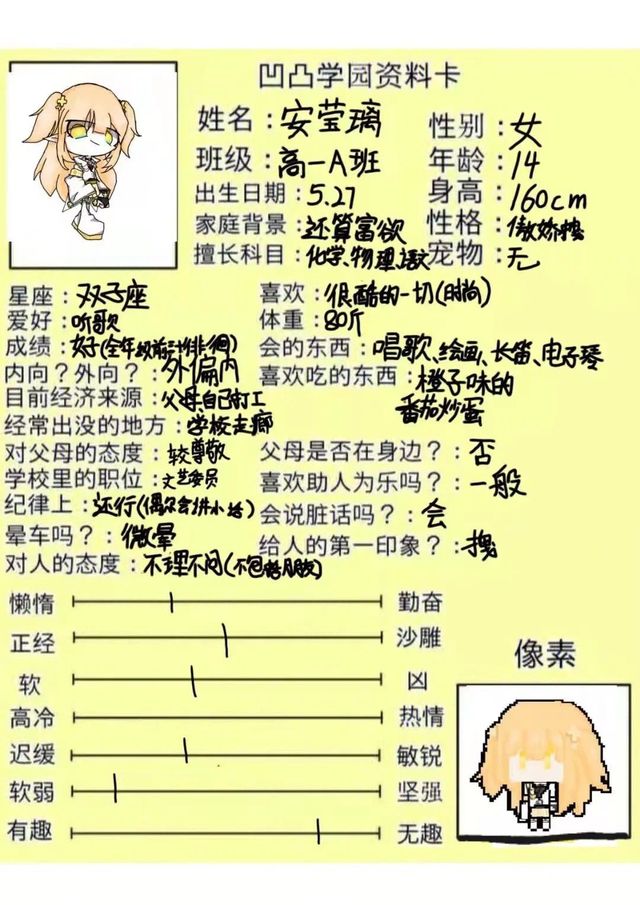 凹凸学园资料卡
姓名：安莹璃 性别：女
班级：高一A班 年龄：14
出生日期：5.27 身高：160cm
家庭背景：还算富欲 性格：傲娇拽
擅长科目：化学、物理、语文 宠物：无
星座：双子座 喜欢：很酷的一切(时尚)
爱好：听歌 体重：80斤
成绩：好(全年级前汁徘徊) 会的东西：唱歌、绘画、长笛、电子琴
内向？外向？：外偏内 喜欢吃的东西：橙子味的
目前经济来源：父母、自己打工 番茄炒蛋
经常出没的地方：学校走廊
对父母的态度：较尊敬 父母是否在身边？：否
学校里的职位：文艺委员 喜欢助人为乐吗？：一般
纪律上：还行(偶尔会讲小话) 会说脏话吗？：会
晕车吗？：微晕 给人的第一印象？：拽
对人的态度：不理不闷(不包括朋友)
懒惰 勤奋
正经 沙雕
软 凶
高冷 热情
迟缓 敏锐
软弱 坚强
有趣 无趣
像素